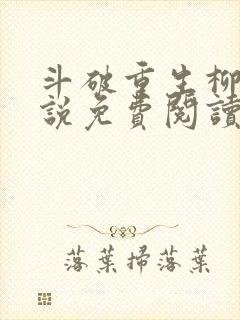 斗破重生柳
說免費閱讀
落葉掃落葉